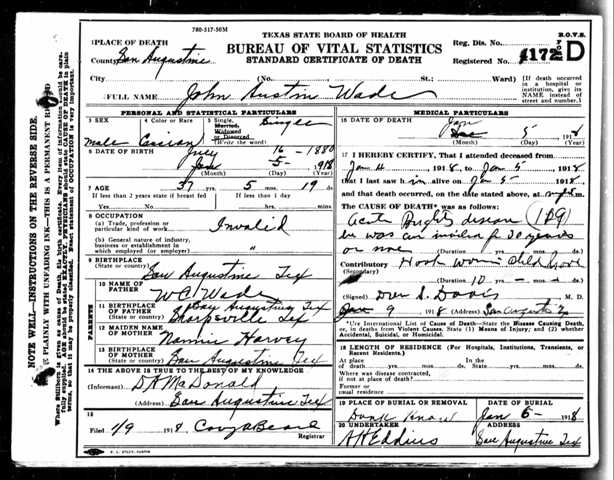 780-517-50M
TEXAS STATE BOARD OF HEALTH
B.O.V.S.
BUREAU OF VITAL STATISTICS
STANDARD CERTIFICATE OF DEATH
Reg. Dis. No.
FORM D
Registered No. 4172
PLACE OF DEATH
County San Augustine
City (No. St.; Ward)
[If death occurred in a hospital or institution, give its NAME instead of street and number.]
FULL NAME John Austin Wade
NOTE WELL—INSTRUCTIONS ON THE REVERSE SIDE.
PLAINLY WITH UNFADING INK—THIS IS A PERMANENT
PERSONAL AND STATISTICAL PARTICULARS
3 SEX
male
4 Color or Race
5 Single, Married, Widowed or Divorced (Write the word)
Single
6 DATE OF BIRTH
July 16 - 1880
Jan -5- 918
(Month) (Day) (Year)
7 AGE 37 yrs. 5 mos. 19 ds.
If less than 2 years state if breast fed
If less than 1 day
Yes No hrs. min.
8 OCCUPATION
(a) Trade, profession or particular kind of work Invalid
(b) General nature of industry, business or establishment in which employed (or employer) "
9 BIRTHPLACE
(State or country) San Augustine Tex
PARENTS
10 NAME OF FATHER
W C Wade
11 BIRTHPLACE OF FATHER
(State or country) Sharpsville Tex
12 MAIDEN NAME OF MOTHER
Nannie Harvey
13 BIRTHPLACE OF MOTHER
(State or country) San Augustine Tex
14 THE ABOVE IS TRUE TO THE BEST OF MY KNOWLEDGE
(Informant) D A McDonald
(Address) San Augustine Tex
15
Filed 1/9 1918
Registrar
MEDICAL PARTICULARS
16 DATE OF DEATH
Jan 5 1918
(Month) (Day) (Year)
17 I HEREBY CERTIFY, That I attended deceased from
Jan 4 1918 to Jan 5 1918
that I last saw him alive on Jan 5 1918
and that death occurred, on the date stated above, at m.
The CAUSE OF DEATH* was as follows:
Acute Brights disease (119)
he was an invalid for 20 years
or more
(Duration yrs. mos. ds.)
Contributory Hook worm child hood
(Secondary)
(Duration 10 yrs. mos. ds.)
(Signed) S. Davis M. D.
9 1918 (Address) San Augustine
*Use International List of Cause of Death—State the Disease Causing Death, or, in deaths from Violent Causes. State (1) Means of Injury; and (2) whether Accidental, Suicidal, or Homicidal.
18 LENGTH OF RESIDENCE (For Hospitals, Institutions, Transients, or Recent Residents.)
At place of death yrs. mos. ds.
In the State yrs. mos. ds.
Where was disease contracted, if not at place of death?
Former or usual residence
19 PLACE OF BURIAL OR REMOVAL
Dont Know
DATE OF BURIAL
Jan 6 - 1918
20 UNDERTAKER
A H Eddins
ADDRESS
San Augustine Tex